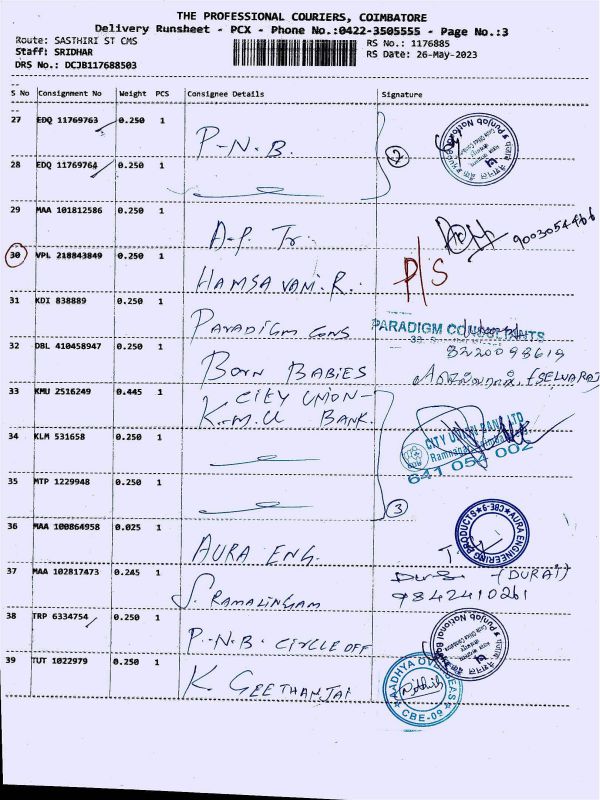 THE PROFESSIONAL COURIERS, COIMBATORE
Delivery Runsheet - PCX - Phone No.:0422-3505555 - Page No.:3
Route: SASTHIRI ST CMS
RS No.: 1176885
Staff: SRIDHAR
RS Date: 26-May-2023
DRS No.: DCJB117688503
S No Consignment No Weight PCS Consignee Details Signature
27 EDQ 11769763 0.250 1 P.N.B. 2
28 EDQ 11769764 0.250 1
29 MAA 101812586 0.250 1 A.P. Tr. 9003054466
30 VPL 218843849 0.250 1 HAMSA VANI.R. P/S
31 KDI 838889 0.250 1 PARADIGM CONS PARADIGM CONSULTANTS
32 DBL 410458947 0.250 1 BORN BABIES 8220098619
(SELVARAJ
33 KMU 2516249 0.445 1 CITY UNION-
K.M.U BANK.
CITY UNION BANK LTD
641 054 002
34 KLM 531658 0.250 1
35 MTP 1229948 0.250 1 3
36 MAA 100864958 0.025 1 AURA ENG. AURA ENGINEERING PRODUCTS CBE-9
37 MAA 102817473 0.245 1 S. RAMALINGAM (DURAI)
9842410261
38 TRP 6334754 0.250 1 P.N.B. CIRCLE OFF Punjab National Bank
39 TUT 1022979 0.250 1 K. GEETHANJAI
AADHYA OVERSEAS CBE-09